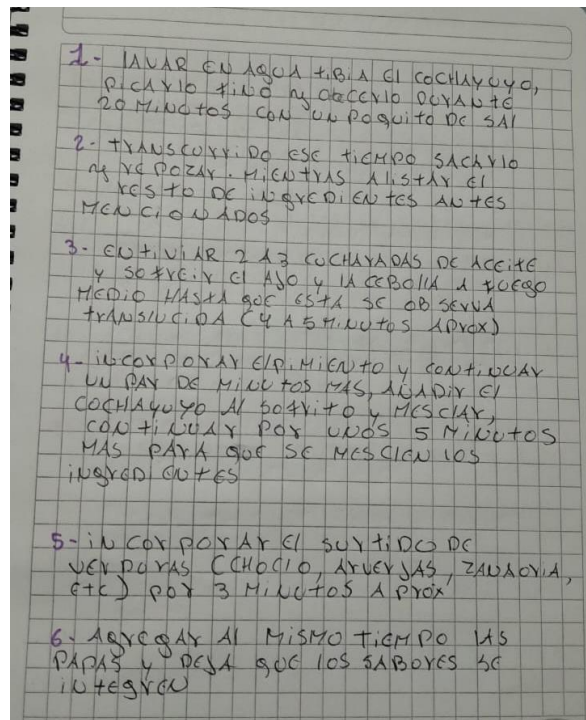 1- LAVAR EN AGUA TIBIA EL COCHAYUYO,
PICARLO FINO Y COCERLO DURANTE
20 MINUTOS CON UN POQUITO DE SAL
2- TRANSCURRIDO ESE TIEMPO SACARLO
Y REPOZAR. MIENTRAS ALISTAR EL
RESTO DE INGREDIENTES ANTES
MENCIONADOS
3- ENTIVIAR 2 A 3 CUCHARADAS DE ACEITE
Y SOFREIR EL AJO Y LA CEBOLLA A FUEGO
MEDIO HASTA QUE ESTA SE OBSERVA
TRANSLUCIDA (4 A 5 MINUTOS APROX)
4- INCORPORAR EL PIMIENTO Y CONTINUAR
UN PAR DE MINUTOS MAS, AÑADIR EL
COCHAYUYO AL SOFRITO Y MESCLAR,
CONTINUAR POR UNOS 5 MINUTOS
MAS PARA QUE SE MESCLEN LOS
INGREDIENTES
5- INCORPORAR EL SURTIDO DE
VERDURAS (CHOCLO, ARVERJAS, ZANAORIA,
ETC) POR 3 MINUTOS APROX
6- AGREGAR AL MISMO TIEMPO LAS
PAPAS Y DEJA QUE LOS SABORES SE
INTEGREN